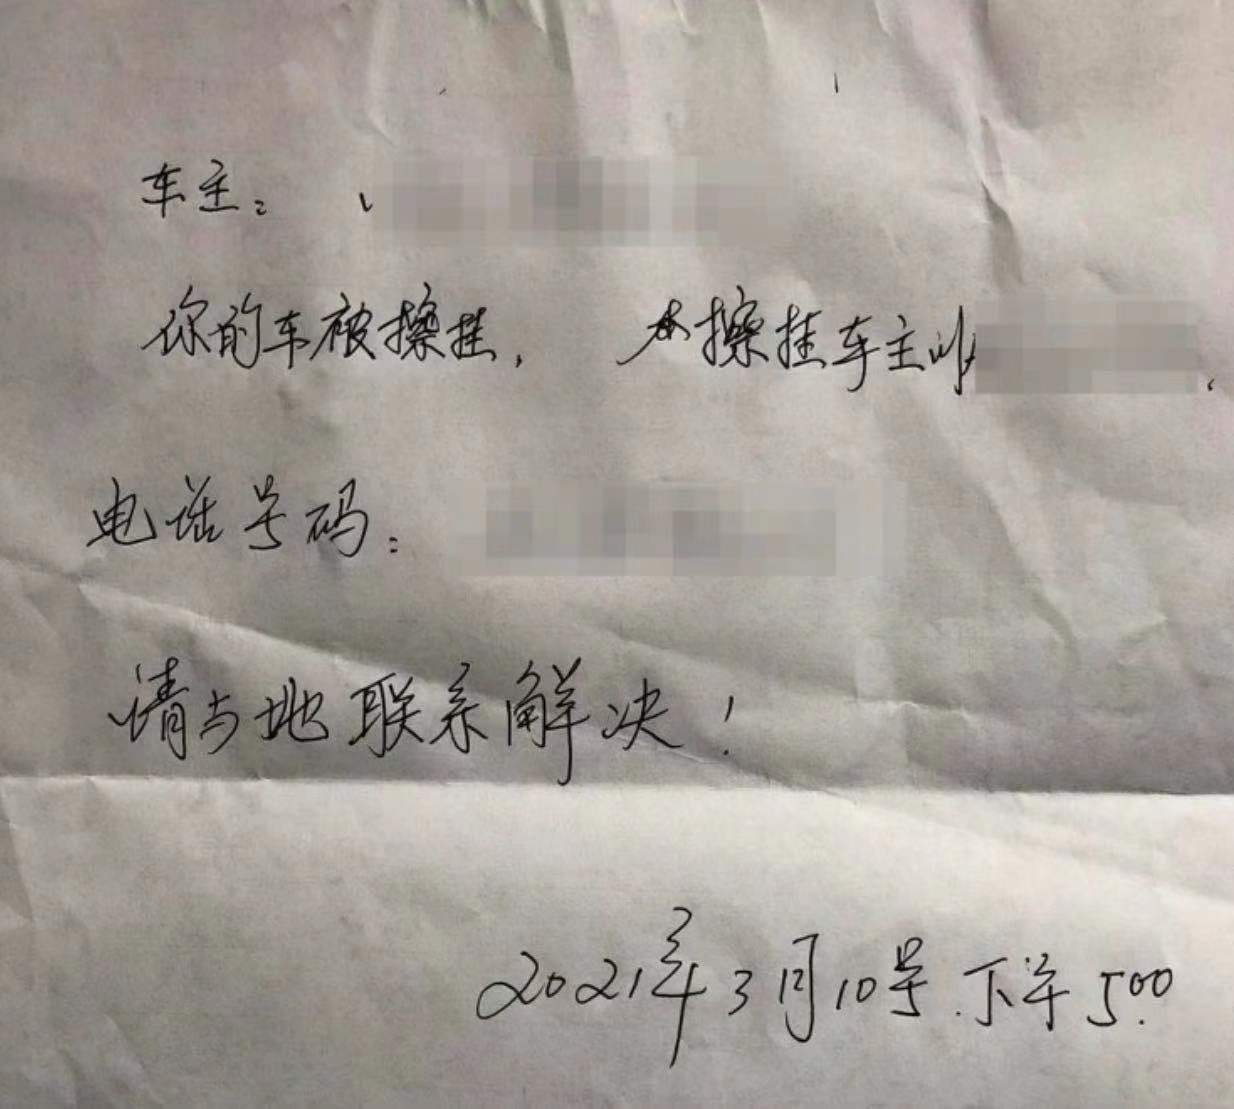 车主：
你的车被擦挂， 擦挂车主叫
电话号码：
请与她联系解决！
2021年3月10号.下午5:00